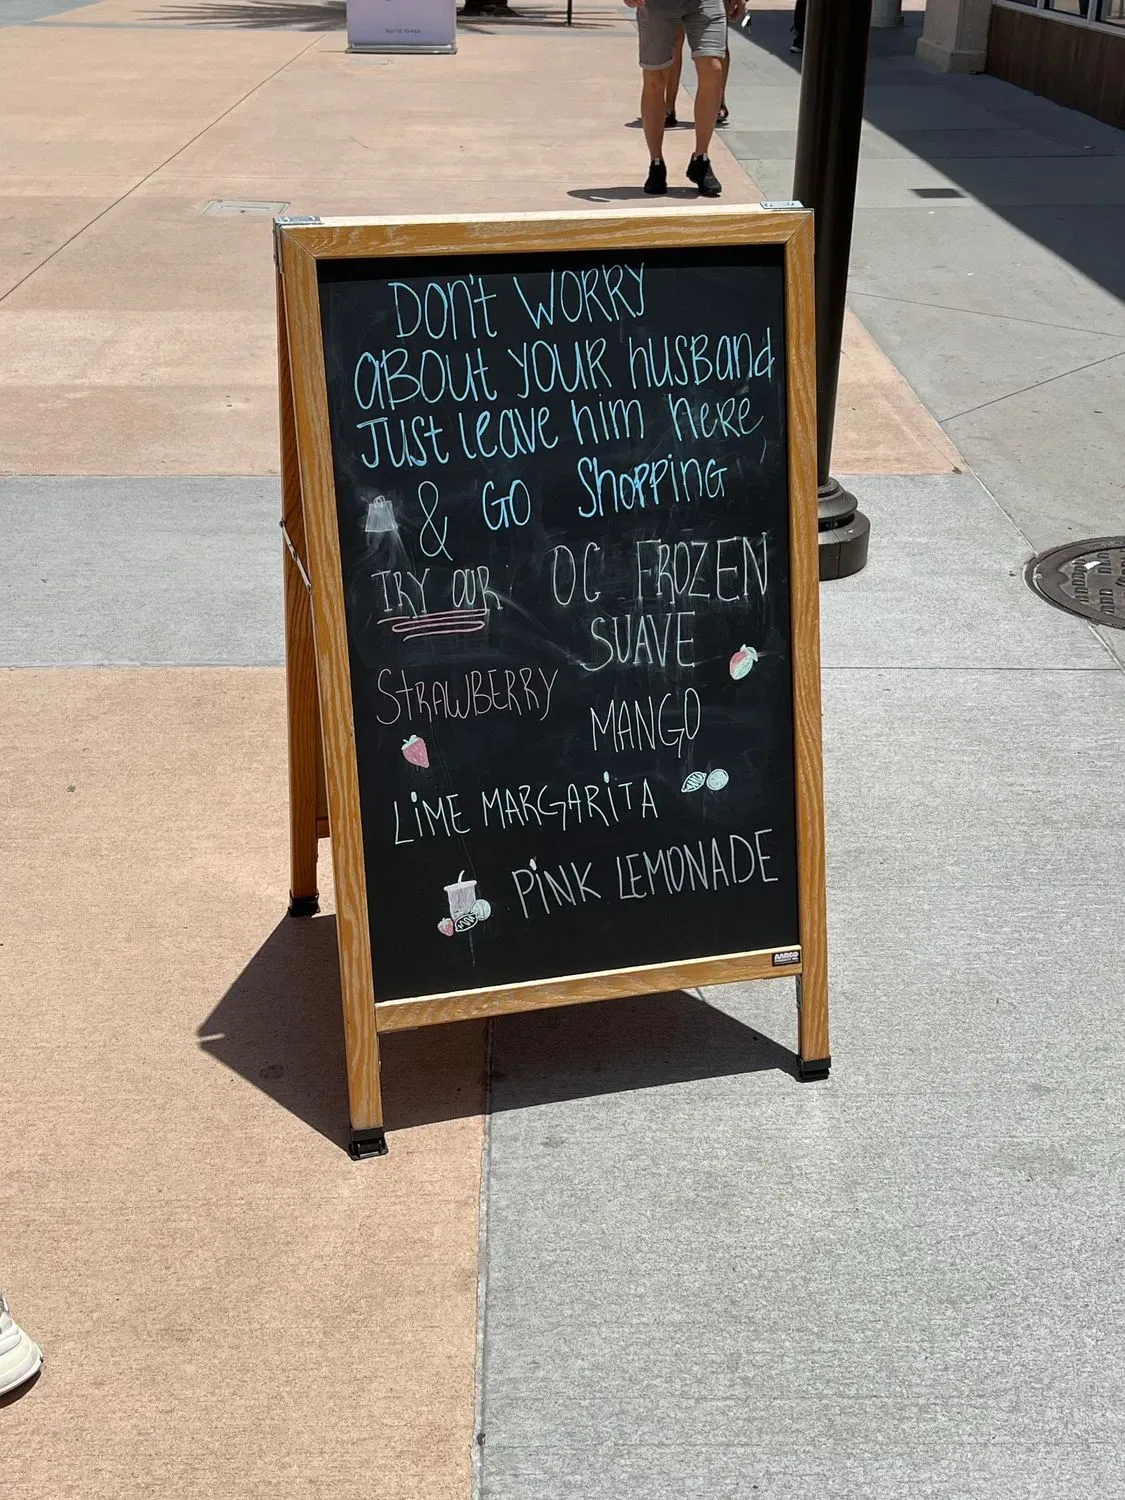 DON'T WORRY
ABOUT YOUR HUSBAND
JUST LEAVE HIM HERE
& GO SHOPPING
TRY OUR OC FROZEN
SUAVE
STRAWBERRY
MANGO
LIME MARGARITA
PINK LEMONADE
AARCO